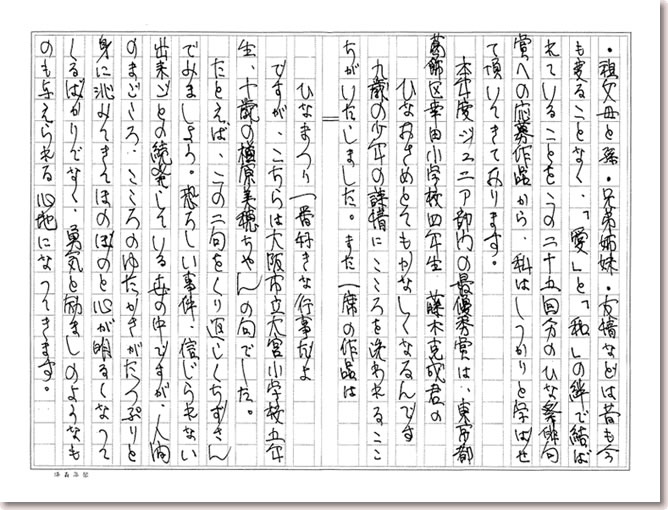 ・祖父母と孫・兄弟姉妹・友情などは昔も今
も変ることなく、「愛」と「和」の絆で結ば
れていることをこの二十五回分のひな祭俳句
賞への応募作品から、私はしっかりと学ばせ
て頂いてきております。
本年度ジュニア部門の最優秀賞は、東京都
葛飾区幸田小学校四年生 藤木克成君の
ひなおさめとてもかなしくなるんです
九歳の少年の詩情にこころを洗われるここ
ちがいたしました。また一席の作品は
ひなまつり一番好きな行事だよ
ですが、こちらは大阪市立大宮小学校五年
生、十歳の植原美穂ちゃんの句でした。
たとえば、この二句をくり返しくちずさん
でみましょう。恐ろしい事件、信じられない
出来ごとの続発している世の中ですが、人間
のまごころ、こころのゆたかさがたっぷりと
身に沁みてきてほのぼのと心が明るくなって
くるばかりでなく、勇気と励ましのようなも
のも与えられる心地になってきます。